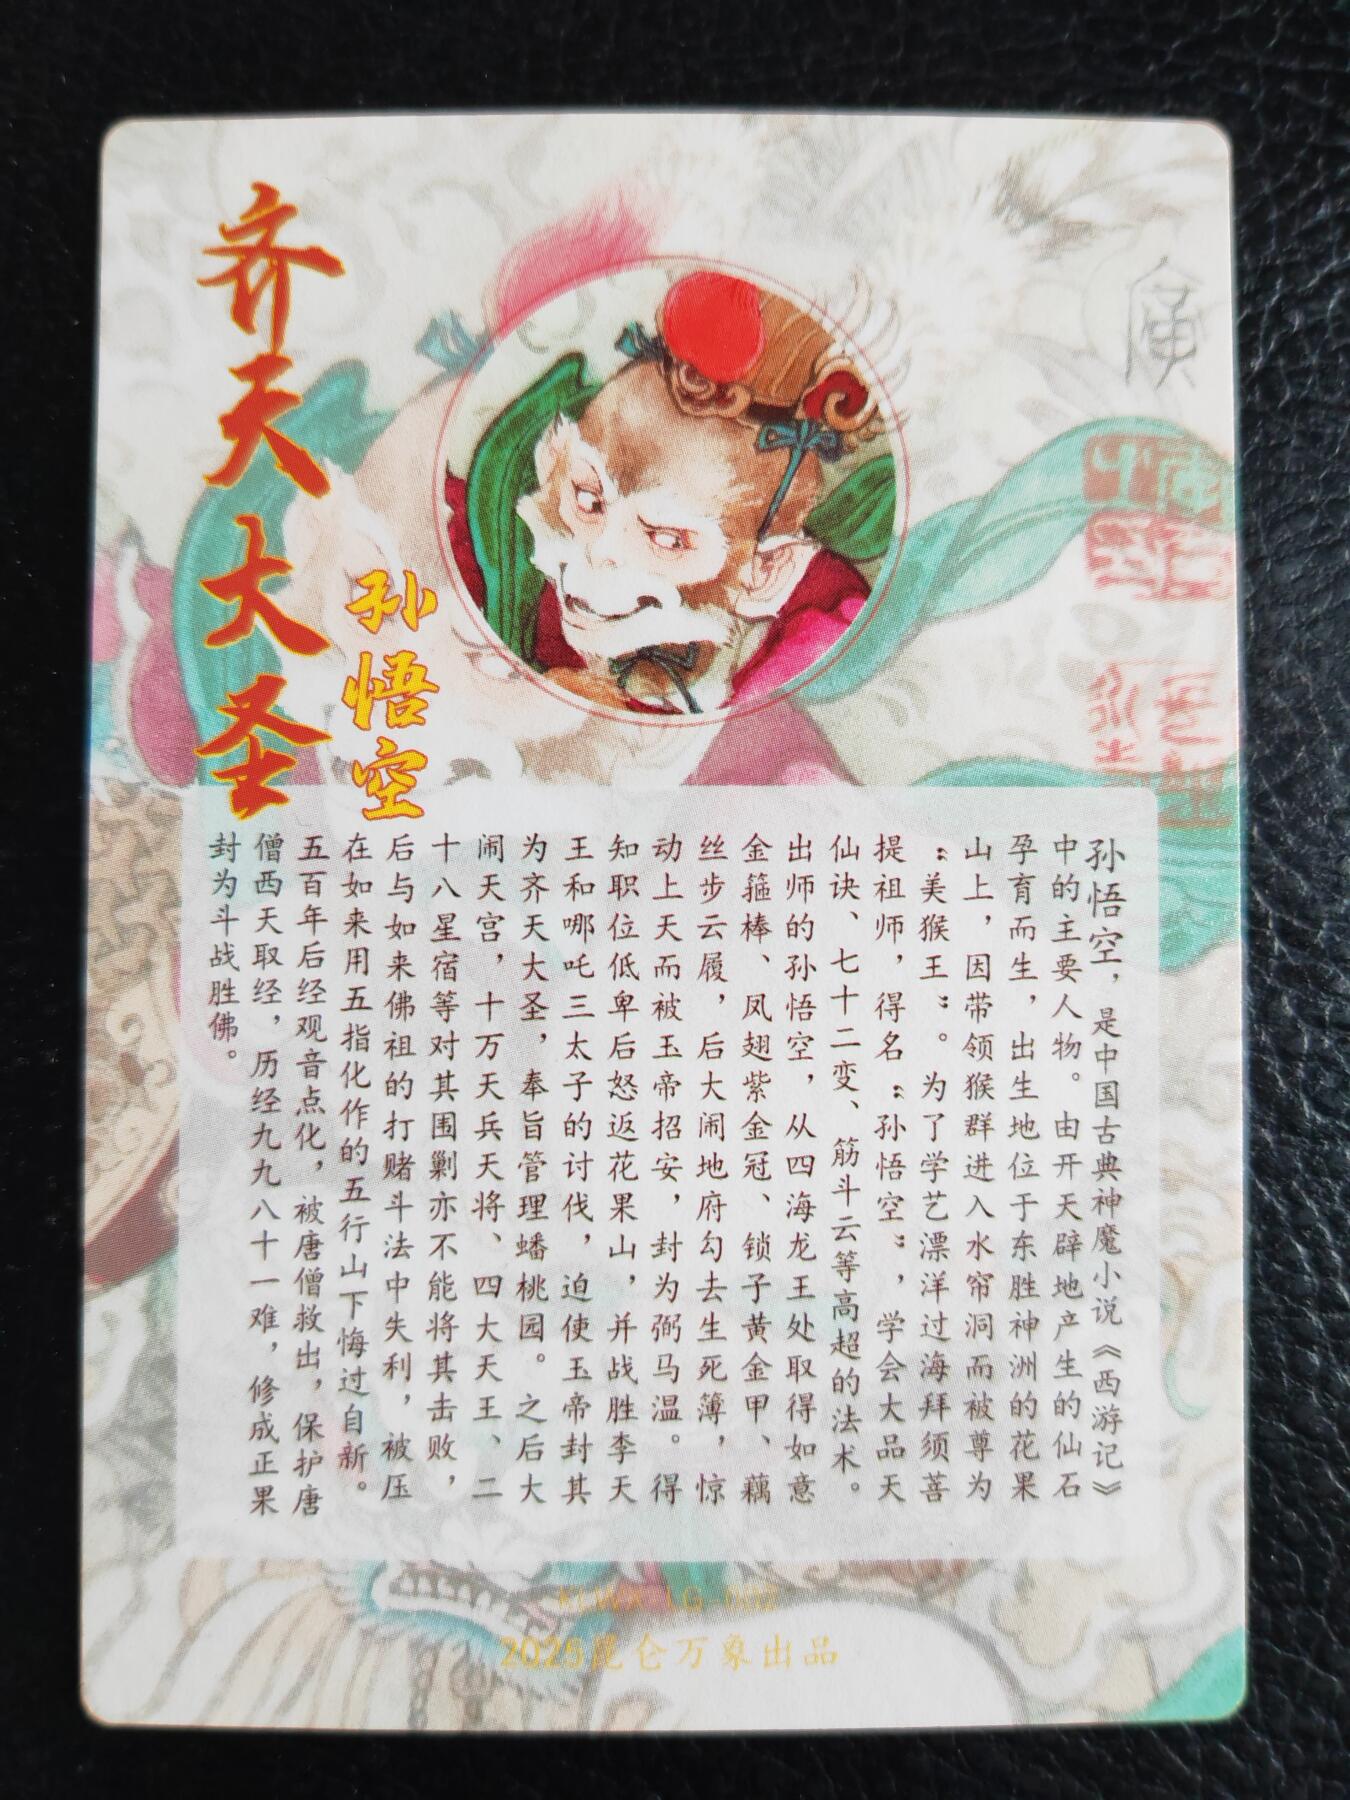 齐天大圣
孙悟空
孙悟空，是中国古典神魔小说《西游记》
中的主要人物。由开天辟地产生的仙石
孕育而生，出生地位于东胜神洲的花果
山上，因带领猴群进入水帘洞而被尊为
“美猴王”。为了学艺漂洋过海拜须菩
提祖师，得名“孙悟空”，学会大品天
仙诀、七十二变、筋斗云等高超的法术。
出师的孙悟空，从四海龙王处取得如意
金箍棒、凤翅紫金冠、锁子黄金甲、藕
丝步云履，后大闹地府勾去生死簿，惊
动上天而被玉帝招安，封为弼马温。得
知职位低卑后怒返花果山，并战胜李天
王和哪吒三太子的讨伐，迫使玉帝封其
为齐天大圣，奉旨管理蟠桃园。之后大
闹天宫，十万天兵天将、四大天王、二
十八星宿等对其围剿亦不能将其击败，
后与如来佛祖的打赌斗法中失利，被压
在如来用五指化作的五行山下悔过自新。
五百年后经观音点化，被唐僧救出，保护唐
僧西天取经，历经九九八十一难，修成正果
封为斗战胜佛。
KLWX-LG-002
2025昆仑万象出品